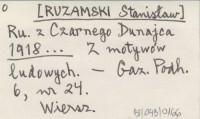 [RUZAMSKI Stanisław]
Ru. z Czarnego Dunajca
1918... Z motywów
ludowych. — Gaz. Podh.
6, nr 24.
Wiersz.